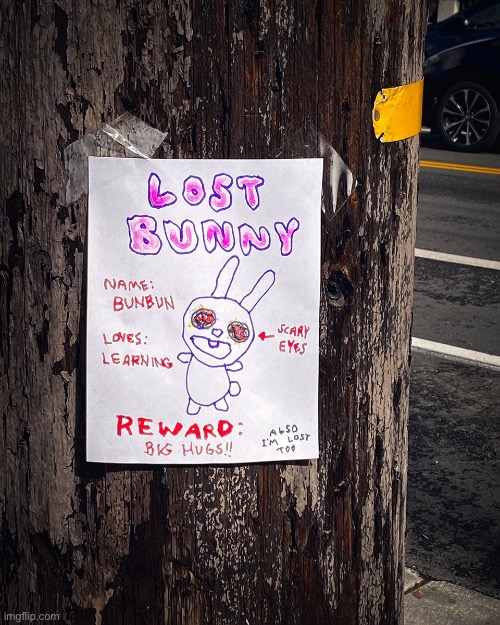 LOST
BUNNY
NAME:
BUNBUN
LOVES:
LEARNING
SCARY
EYES
REWARD:
BIG HUGS!!
ALSO
I'M LOST
TOO
imgflip.com